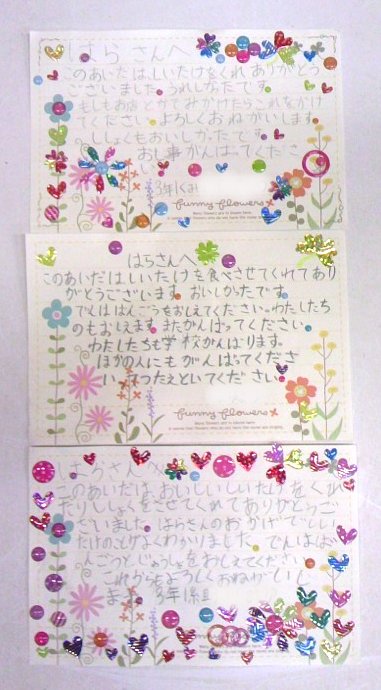 はらさんへ
このあいだはしいたけをくれありがとう
ございました。うれしかったです。
もしもお店とかでみかけたらこれをかけ
てください。よろしくおねがいします。
ししょくもおいしかったです。
お仕事がんばってくださ
い。
3年1くみ
funny flowers
はらさんへ
このあいだはしいたけを食べさせてくれてあり
がとうございます。おいしかったです。
でんはばんごうをおしえてください。わたしたち
のもおしえます。またがんばってください
わたしたちも学校がんばります。
ほかの人にもがんばってくださ
いってつたえといてください。
funny flowers
はらさんへ
このあいだは、おいしいしいたけをくれ
たりししょくをさせてくれてありがとうご
ざいました。はらさんのおかげでしい
たけのことがよくわかりました。でんはば
んごうとじゅうしょをおしえてください。
これからもよろしくおねがいし
ます。3年1組